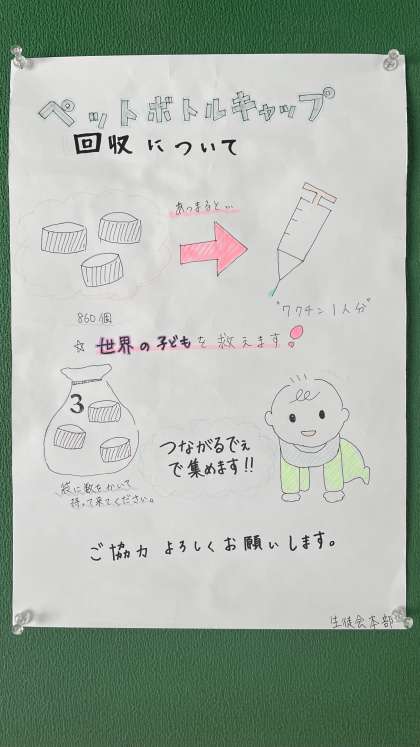 ペットボトルキャップ
回収について
あつまると…
860個
"ワクチン1人分"
☆世界の子どもを救えます!
3
袋に数をかいて
持って来てください。
つながるでぇ
で集めます!!
ご協力 よろしくお願いします。
生徒会本部